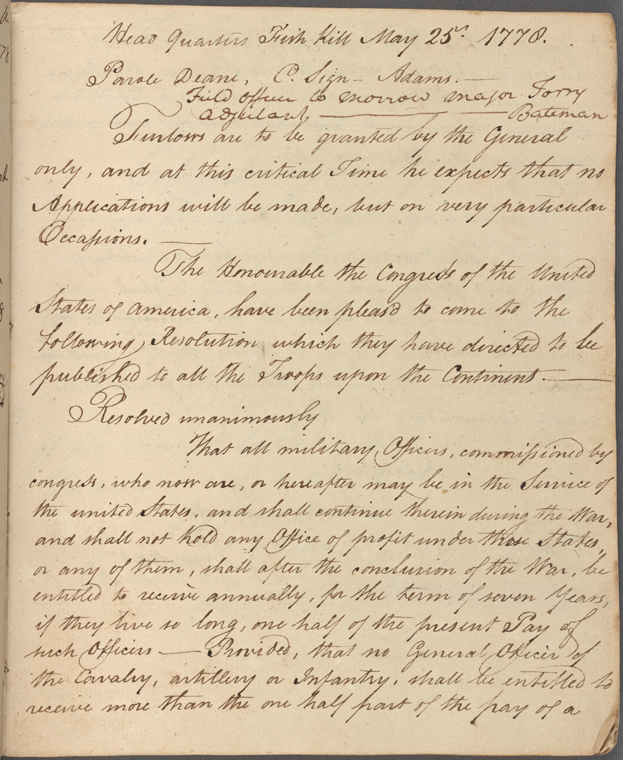 Head Quarters Fish Kill May 25th 1778.
Parole Deane, C. Sign - Adams. —
Field officer to morrow major Torry
Adjutant — — Bateman
Furlows are to be granted by the General
only, and at this critical Time he expects that no
Applications will be made, but on very particular
Occassions. —
The Honourable the Congress of the United
States of America, have been pleas'd to come to the
following Resolution which they have directed to be
published to all the Troops upon the Continent. —
Resolved unanimously
That all military Officers, commissioned by
congress, who now are, or hereafter may be in the Service of
the united States, and shall continue therein during the War,
and shall not hold any Office of profit under these States,
or any of them, shall after the conclusion of the War, be
entitled to receive annually, for the term of seven Years,
if they live so long, one half of the present Pay of
such Officers — Provided, that no General Officer of
the Cavalry, artillery or Infantry, shall be entitled to
receive more than the one half part of the pay of a